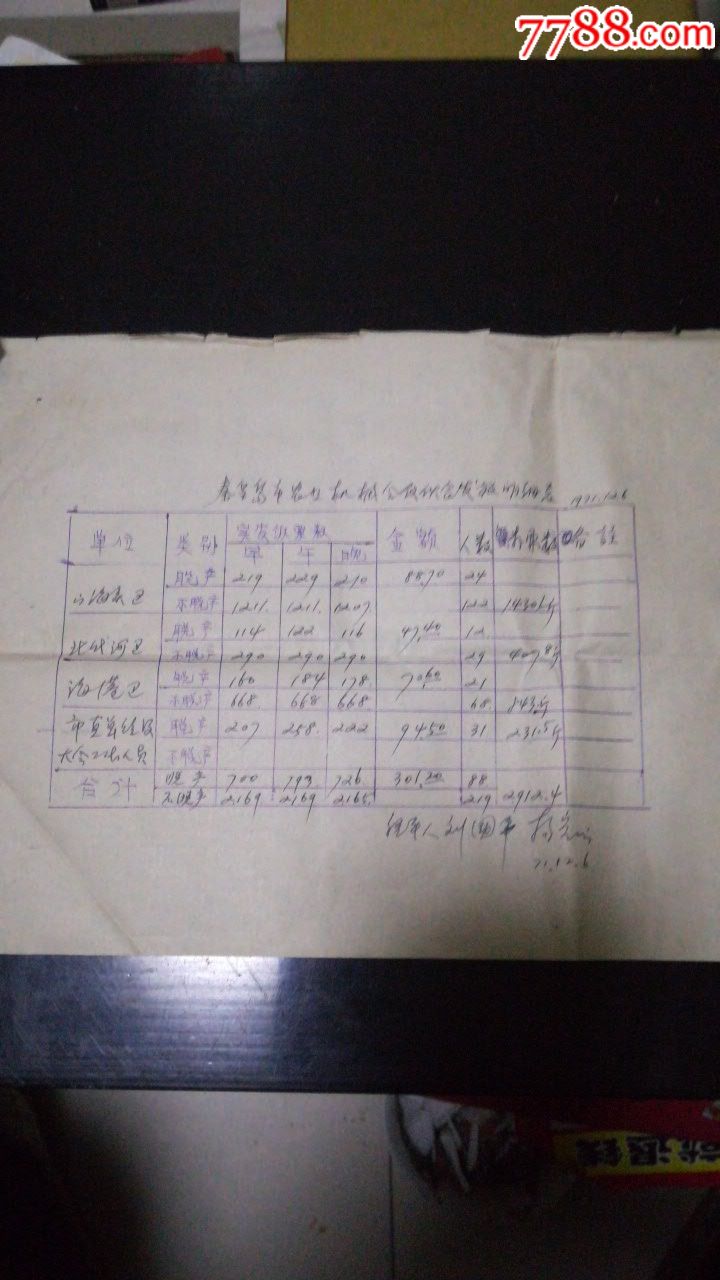 7788.com
秦皇岛市农业机械会议伙食发放明细表 1971.12.6
单位 类别 实发饭票数 金额 人数 票数 合计
早 午 晚
山海关区 脱产 219 229 210 88.70 24
不脱产 1211. 1211. 1207. 122
北戴河区 脱产 114 122 116 47.40 12
不脱产 290 290 290 29
海港区 脱产 160 184 178 70.60 21
不脱产 668. 668 668. 68
市直单位及 脱产 207 258. 222 94.50 31
大会工作人员 不脱产
合计 脱产 700 793 726 301.20 88
不脱产 2169 2169 2165. 219 2912.4
经手人 刘国平
71.12.6
退钱